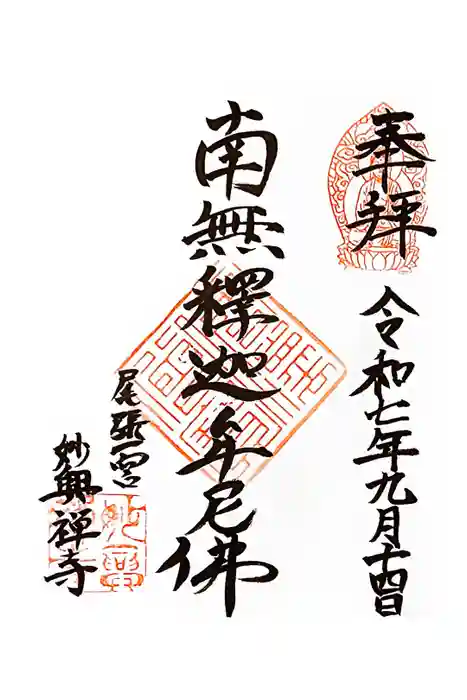 奉拝
令和七年九月十四日
南無釋迦牟尼佛
尾張一宮
妙興禅寺